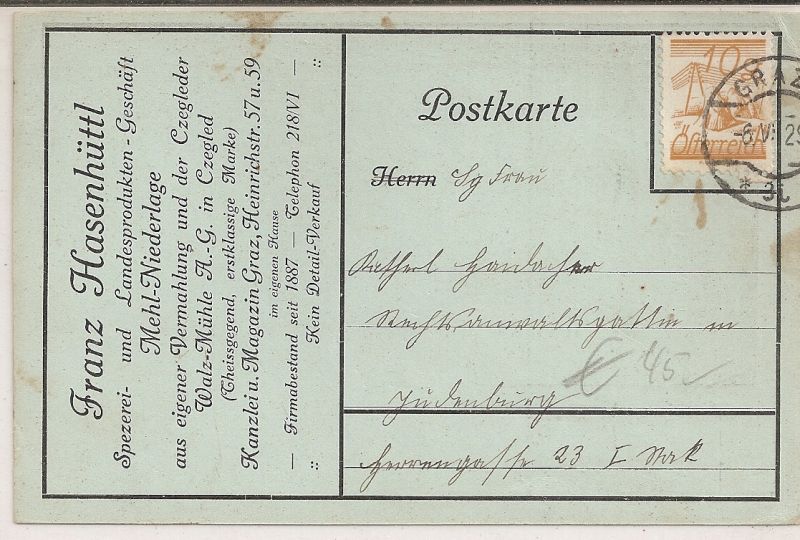 Franz Hasenhüttl
Spezerei- und Landesprodukten-Geschäft
Mehl-Niederlage
aus eigener Vermahlung und der Czegleder
Walz-Mühle A.-G. in Czegled
(Theissgegend, erstklassige Marke)
Kanzlei u. Magazin Graz, Heinrichstr. 57 u. 59
im eigenen Hause
— Firmabestand seit 1887 — Telephon 218/VI —
:: Kein Detail-Verkauf ::
Postkarte
Herrn Frau
Rechtsanwaltsgattin in
Judenburg
Herrengasse 23 I Stock
10
Österreich
GRAZ
-6.VI.29
€ 45